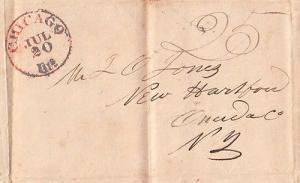 CHICAGO
JUL
20
Ill.
25
Mr L O Jones
New Hartford
Oneida Co
N Y